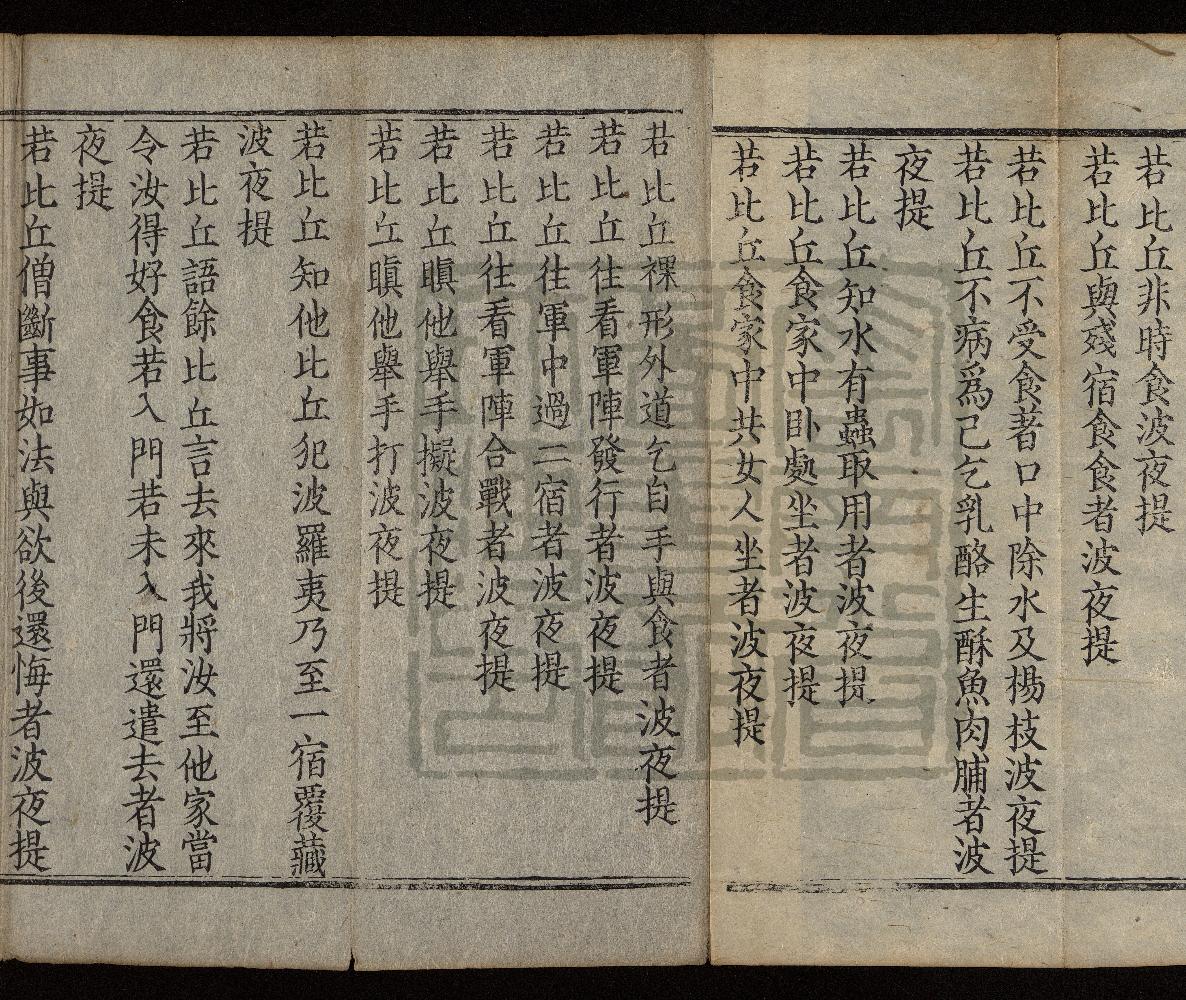 若比丘非時食波夜提
若比丘與殘宿食食者波夜提
若比丘不受食著口中除水及楊枝波夜提
若比丘不病爲己乞乳酪生酥魚肉脯者波
夜提
若比丘知水有蟲取用者波夜提
若比丘食家中卧處坐者波夜提
若比丘食家中共女人坐者波夜提
若比丘裸形外道乞自手與食者波夜提
若比丘往看軍陣發行者波夜提
若比丘往軍中過二宿者波夜提
若比丘往看軍陣合戰者波夜提
若比丘瞋他舉手擬波夜提
若比丘瞋他舉手打波夜提
若比丘知他比丘犯波羅夷乃至一宿覆藏
波夜提
若比丘語餘比丘言去來我將汝至他家當
令汝得好食若入門若未入門還遣去者波
夜提
若比丘僧斷事如法與欲後還悔者波夜提